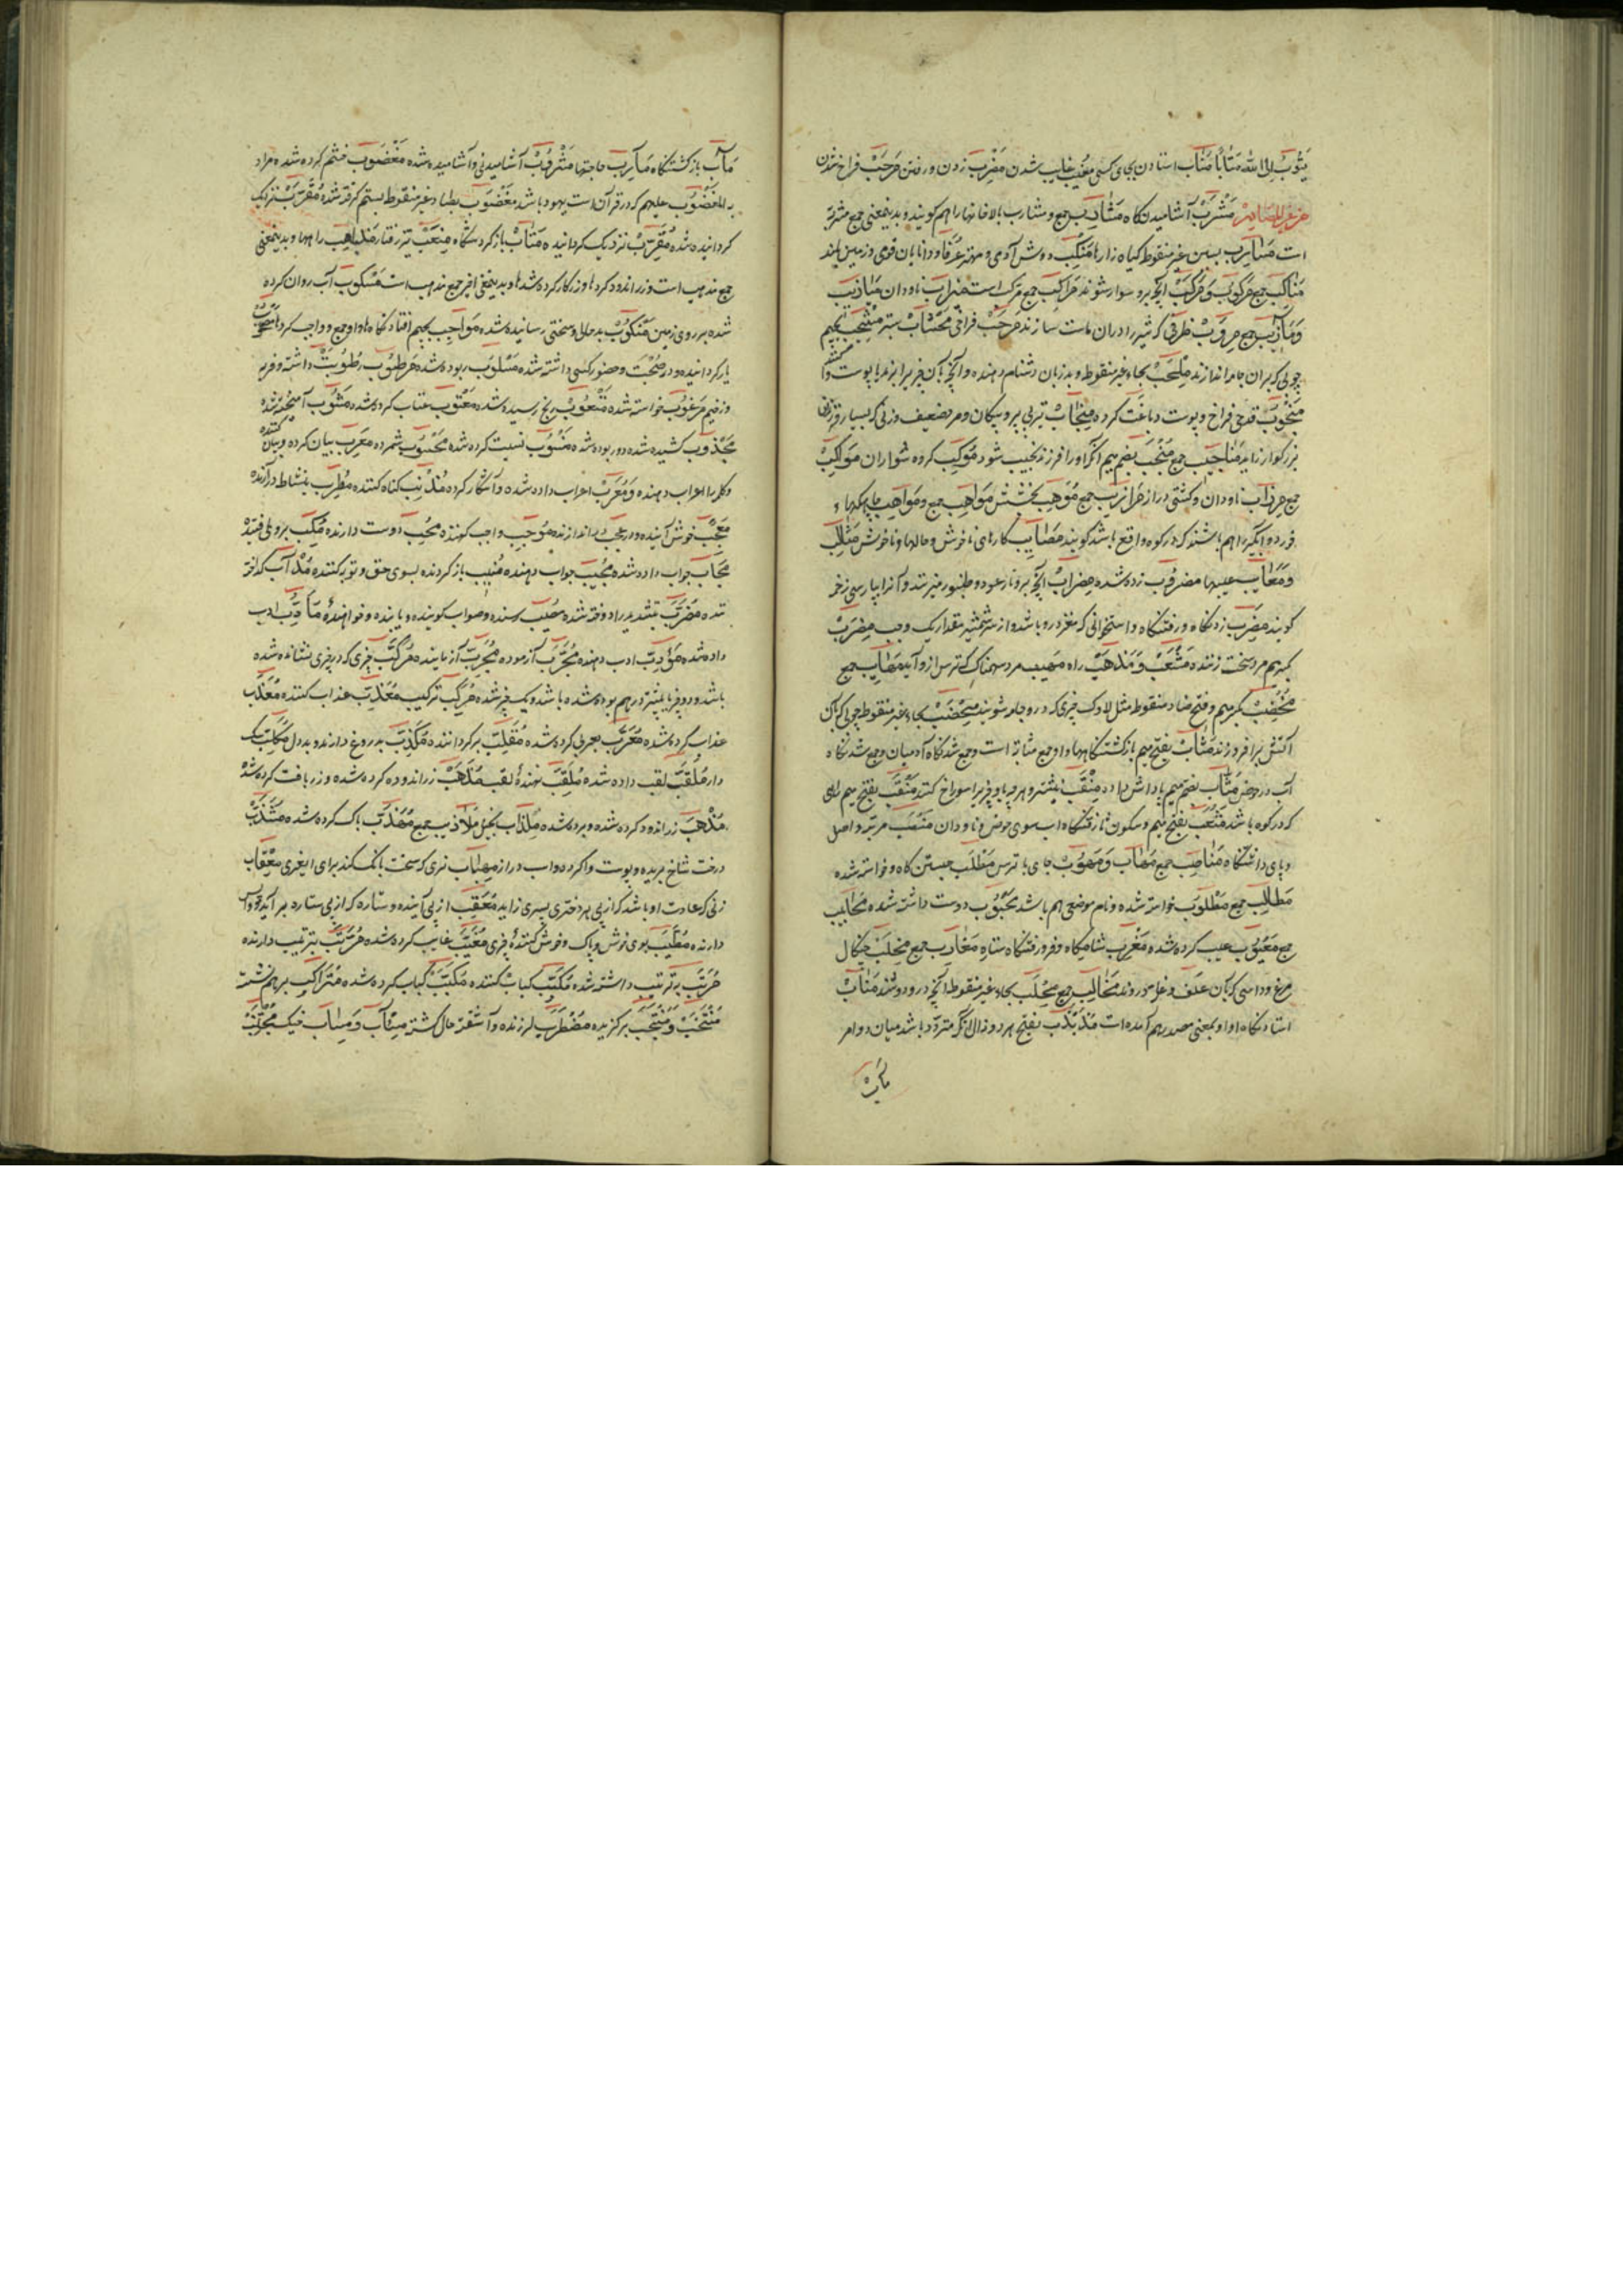 یَتُوبُ اِلَی اللهِ مَتَابًا مَنَاب استادن بجای کسی مَغِیب غایب شدن مَضْرَب زدن و رفتن مَرْحَب فراخ شدن
مَشْرَب آشامیدنکاه مَشَارِب جمع و مشارب بالاخانها را هم کویند و بدینمعنی جمع مشربة
است مَسَارِب بسین غیر منقوط کیاه زارها مَنْکِب دوش آدمی و مهتر عُرَفا و دانایان قومی و زمین بلند
مَنَاکِب جمع مَرْکُوب وَ مَرْکَب آنچه برو سوار شوند مَرَاکِب جمع مرکب است مِیزَاب ناودان مَیَازِیب
وَ مَآزِیب جمع مِرْوَب ظرفی که شیر را در ان ماست سازند مَرْحَب فراخی مِشْجَب بجیم
چوبی که بر ان جامه اندازند مِلْحَب بحاء غیر منقوط و بد زبان دشنام دهنده و آنچه بآن چیز برا برند یا پوست
مَنْجُوب قدحی فراخ و پوست دباغت کرده مِنْجَاب تیر بی پر و پیکان و مرد ضعیف و زنی که بسیار فرزندان
بزرکوار زاید مَنَاجِیب جمع مُنْجَب بضم میم آنکه او را فرزند نجیب شود مَوْکِب کروه سواران مَوَاکِب
جمع مِرْزَاب ناودان و کشتی دراز مَرَازِیب جمع مَوْهِب بخشش مَوَاهِب جمع و مَوَاهِب
خرد و آبکیر را هم باشند که در کوه واقع باشد کویند مَصَایِب کارهای ناخوش و حالها و ناخوش مَثَالِب
وَ مَعَایِب عیبها مَضْرُوب زده شده مِضْرَاب آنچه برو تار عود و طنبور میزنند و آنرا پارسی زخمه
کویند مَضْرِب زدنکاه و رفتنکاه و استخوانی که مغز درو باشد و از سر شمشیر مقدار یک وجب مِضْرَب
بکسر میم مرد سخت زننده مَشْعَب وَ مَذْهَب راه مَهِیب مرد سهمناک که ترس ازو آید مَهَایِب جمع
مِخْضَب بکسر میم و فتح ضاد منقوط مثل لاوک چیزی که درو جامه شویند مِحْضَب بحاء غیر منقوط چوبی که بآن
آتش بر افروزند مَثَاب بفتح میم بازکشتنکاهها و او جمع مثابة است و جمع شدنکاه آدمیان و جمع شدنکاه
آب در حوض مُثَاب بضم میم پاداش داده مِنْقَب نیشتر و هر چه باو چیز برا سوراخ کنند مَنْقَب بفتح میم راهی
که در کوه باشد مَثْعَب بفتح میم و سکون ثا رفتنکاه اب سوی حوض و ناودان مَنْصِب مرتبه و اصل
و پای داشتنکاه مَنَاصِب جمع مَهَاب وَ مَهُوب جای با ترس مَطْلَب جستن کاه و خواسته شده
مَطَالِب جمع مَطْلُوب خواسته شده و نام موضعی هم باشد مَحْبُوب دوست داشته شده مَحَابِیب
جمع مَعْیُوب عیب کرده شده مَغْرِب شامکاه و فرو رفتنکاه ستاره مَغَارِب جمع مِخْلَب چنکال
مرغ و داسی که بآن علف و غله دروند مَخَالِب جمع مِحْلَب بحاء غیر منقوط آنچه درو دوشند مَنَاب
استادنکاه او او بمعنی مصدر هم آمده است مُذَبْذَب بفتح هر دو ذال آنکه متردد باشد میان دو امر
مَآب
مَآب بازکشتنکاه مَآرِب حاجتها مَشْرُوب آشامیدنی و آشامیده شده مَغْضُوب خشم کرده شده مراد
به المَغْضُوب علیهم که در قرآن است یهود باشد مَغْصُوب بصاد غیر منقوط بستم کرفته شده مُقَرَّب نزدیک
کردانیده شده مُقَرِّب نزدیک کرداننده مَتَاب بازکردنکاه مِنْعَب تیز رفتار مَذَاهِب راهها و بدینمعنی
جمع مذهب است و زر اندود کردها و زرکار کرده شدها و بدینمعنی اخیر جمع مذهب است مَسْکُوب آب روان کرده
شده بر روی زمین مَنْکُوب بدحال و سختی رسانیده شده مَوَاجِب بجیم افتادنکاهها و او جمع و واجب کردها
یار کردانیده و در صحبت و حضور کسی داشته شده مَسْلُوب ربوده شده مَرْطُوب رطوبت داشته و فربه
و زخیم مَرْغُوب خواسته شده مَتْعُوب رنج رسیده شده مَعْتُوب عتاب کرده شده مَشُوب آمیخته شده
مَجْذُوب کشیده شده و در ربوده شده مَنْسُوب نسبت کرده شده مَحْسُوب شمرده مُعْرِب بیان کرده و بیان کننده
و کلمه را اعراب دهنده وَ مُعْرَب اعراب داده شده و آشکار کرده مُذْنِب کناه کننده مُطْرِب بنشاط درآرنده
مُعْجِب خوش آینده و در عجب اندازنده مُوجِب واجب کننده مُحِب دوست دارنده مُکِب بروی افتنده
مُجَاب جواب داده شده مُجِیب جواب دهنده مُنِیب باز کردنده بسوی حق و توبه کننده مُذَاب کداخته
شده مُضَرَّب بتشدید را دوخته شده مُصِیب رسنده و صواب کوینده و یابنده و خواهنده مُأَدَّب ادب
داده شده مُؤَدِّب ادب دهنده مُجَرَّب آزموده مُجَرِّب آزماینده مُرَکَّب چیزی که در چیزی نشانده شده
باشد و دو چیز یا بیشتر درهم بوده شده باشد و یک چیز شده مُرَکِّب ترکیب مُعَذِّب عذاب کننده مُعَذَّب
عذاب کرده شده مُعَرَّب بعربی کرده شده مُقَلِّب برکرداننده مُکَذِّب بدروغ دارنده و بددل
دار مُلَقَّب لقب داده شده مُلَقِّب نهنده لقب مُذَهَّب زر اندوده کرده شده و زربافت کرده شده
مُذْهَب زر اندود کرده شده و برده شده مِلْذَاب بخیل مَلَاذِیب جمع مُهَذَّب پاک کرده شده مُشَذَّب
درخت شاخ بریده و پوست واکرده و اسب دراز مِهْبَاب نری که سخت بانک کند برای مِعْقَاب
زنی که عادت او باشد که از پی هر دختری پسری زاید مُعَقِّب از پی آینده و ستاره که از پی ستاره بر آید
دارنده مُطَیَّب بوی خوش و پاک و خوش کننده چیزی مُغَیَّب غایب کرده شده مُرَتِّب بترتیب دارنده
مُرَتَّب بترتیب داشته شده مُکَبِّب کباب کننده مُکَبَّب کباب کرده شده مُتَرَاکِب برهم نشسته
مُنْتَخَب وَ مُنْتَجَب برکزیده مُضْطَرِب لرزنده و آشفته حال کشته مِسْأَب وَ مِسَاب خیک